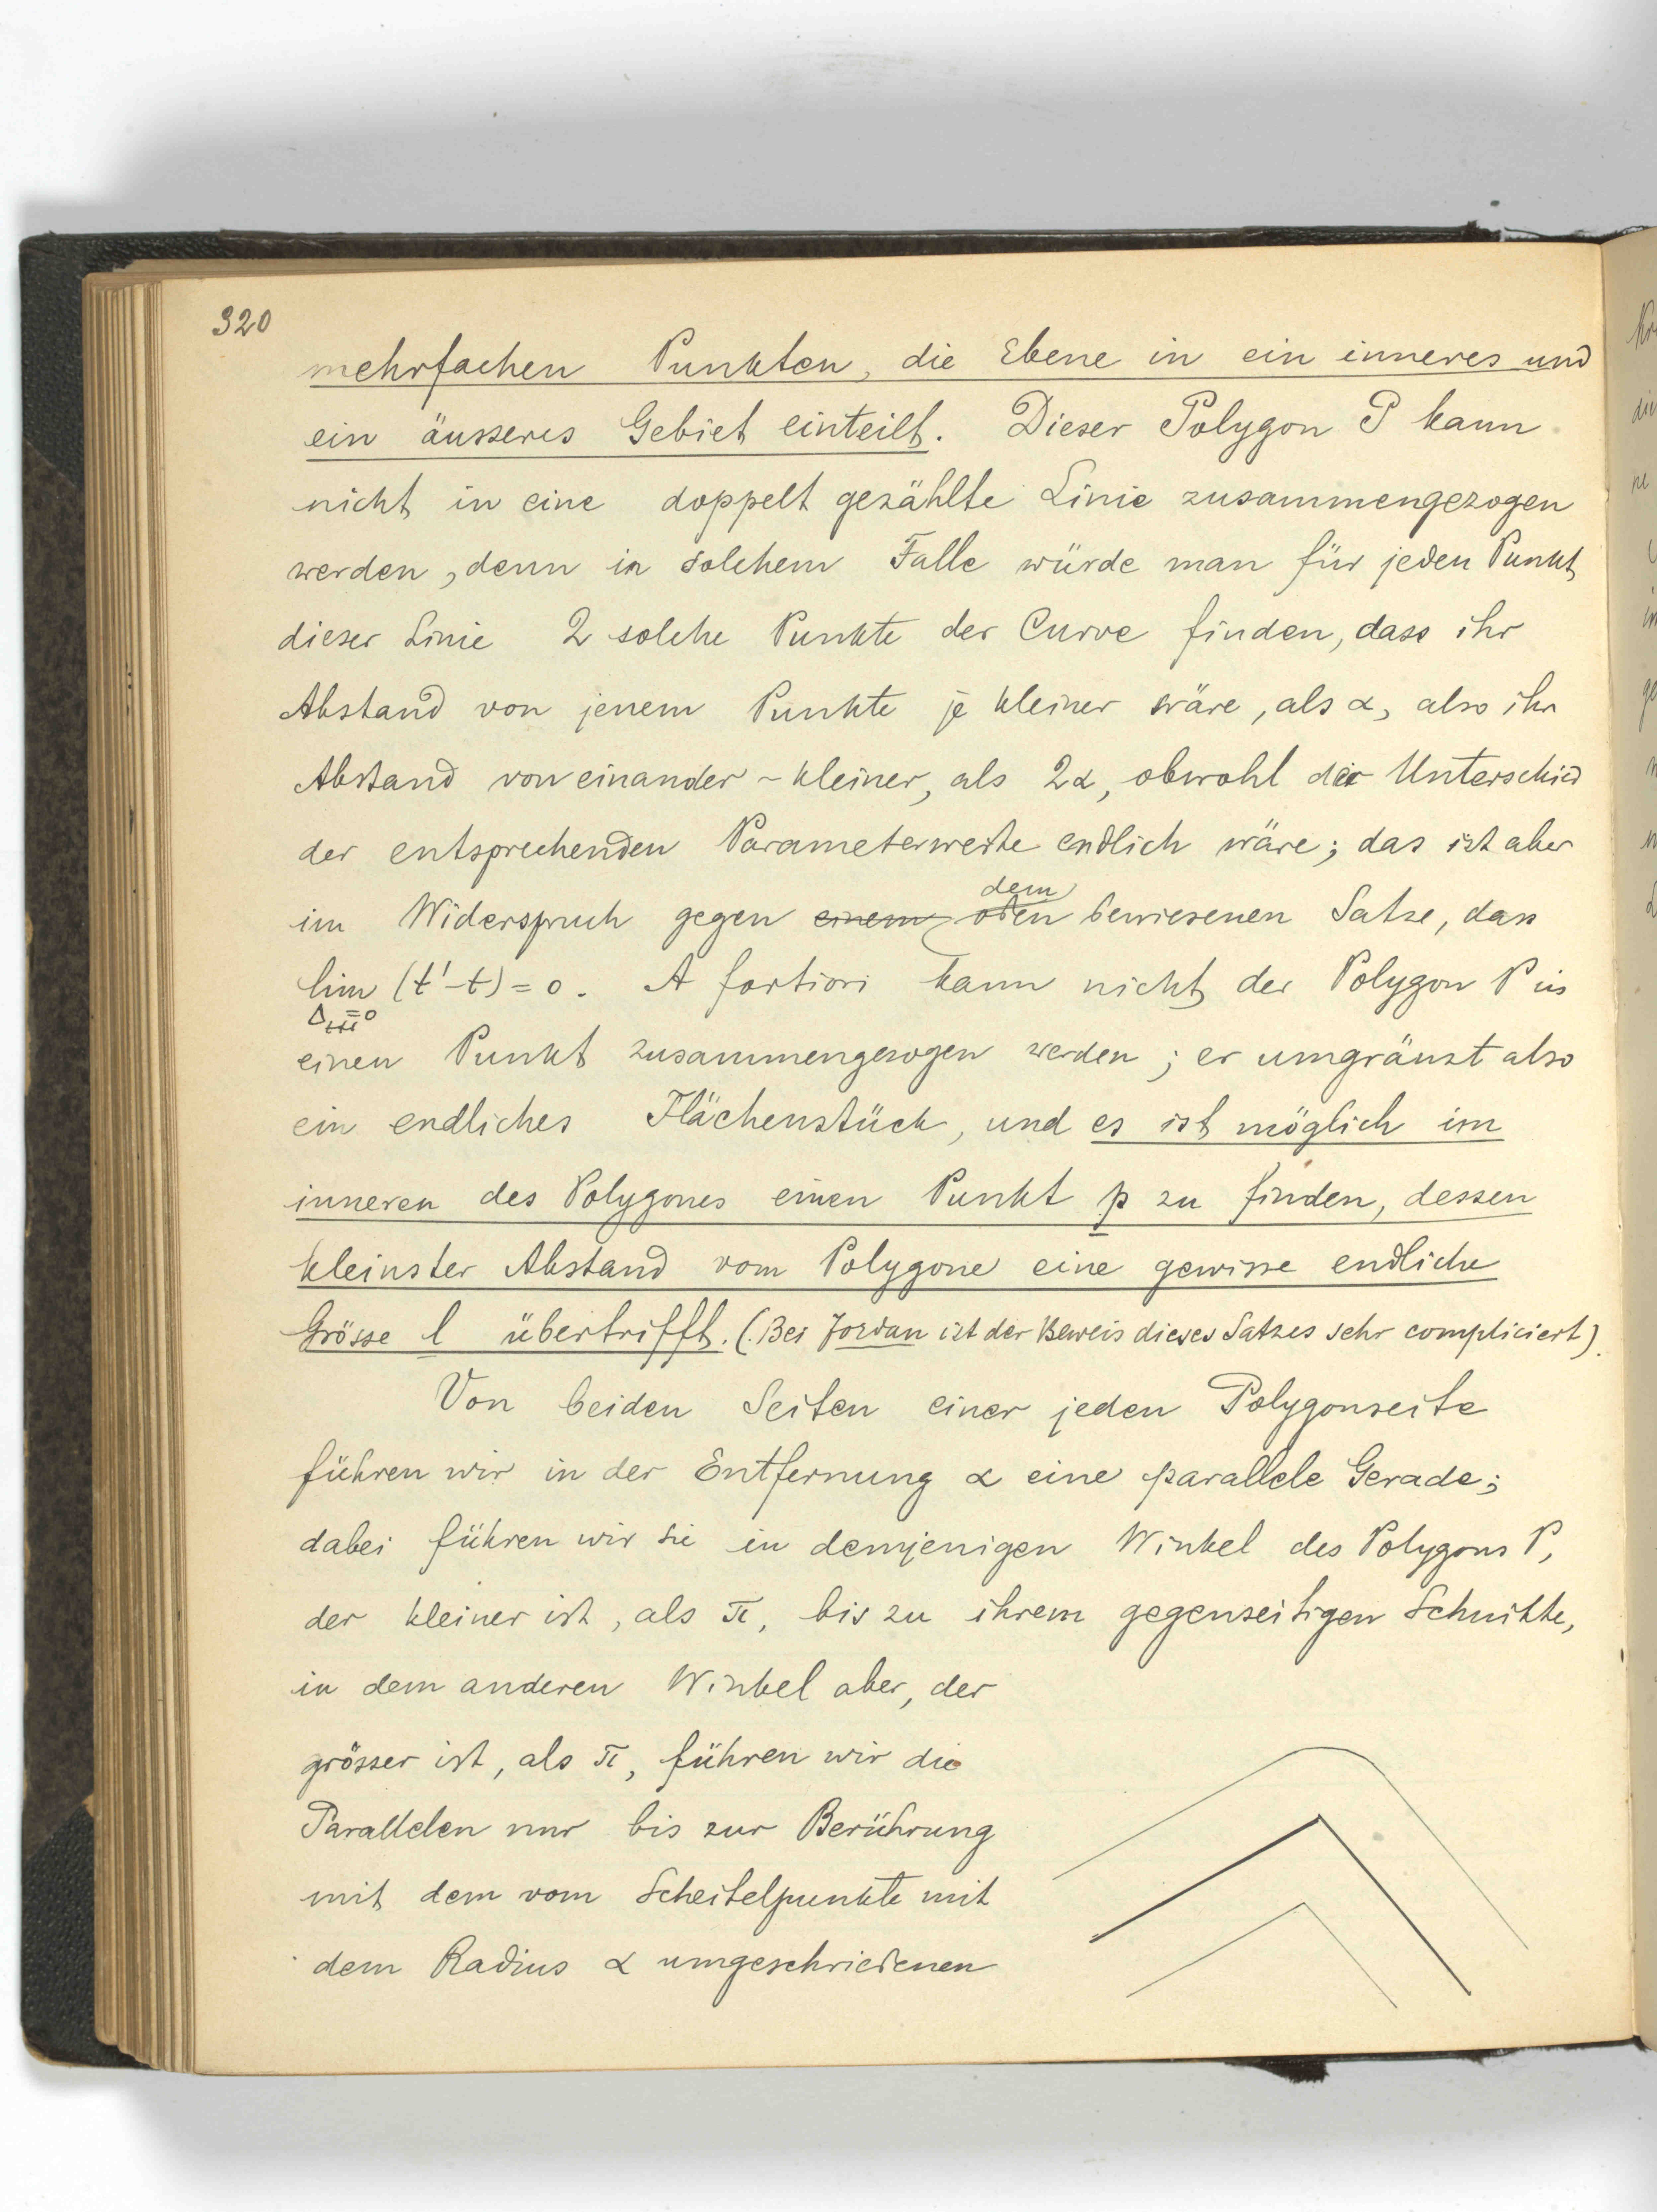 320
mehrfachen Punkten, die Ebene in ein inneres und
ein äusseres Gebiet einteilt. Dieser Polygon P kann
nicht in eine doppelt gezählte Linie zusammengezogen
werden, denn in solchem Falle würde man für jeden Punkt
dieser Linie 2 solche Punkte der Curve finden, dass ihr
Abstand von jenem Punkte je kleiner wäre, als α, also ihr
Abstand von einander - kleiner, als 2α, obwohl der Unterschied
der entsprechenden Parameterwerte endlich wäre; das ist aber
dem
im Widerspruch gegen einem oben bewiesenen Satze, dass
lim (t'-t) = 0. A fortiori kann nicht der Polygon P in
=0
einen Punkt zusammengezogen werden; er umgränzt also
ein endliches Flächenstück, und es ist möglich im
inneren des Polygones einen Punkt p zu finden, dessen
kleinster Abstand vom Polygone eine gewisse endliche
Grösse l übertrifft. (Bei Jordan ist der Beweis dieses Satzes sehr compliciert).
Von beiden Seiten einer jeden Polygonseite
führen wir in der Entfernung α eine parallele Gerade;
dabei führen wir sie in demjenigen Winkel des Polygons P,
der kleiner ist, als π, bis zu ihrem gegenseitigen Schnitte,
in dem anderen Winkel aber, der
grösser ist, als π, führen wir die
Parallelen nur bis zur Berührung
mit dem vom Scheitelpunkte mit
dem Radius α umgeschriebenen